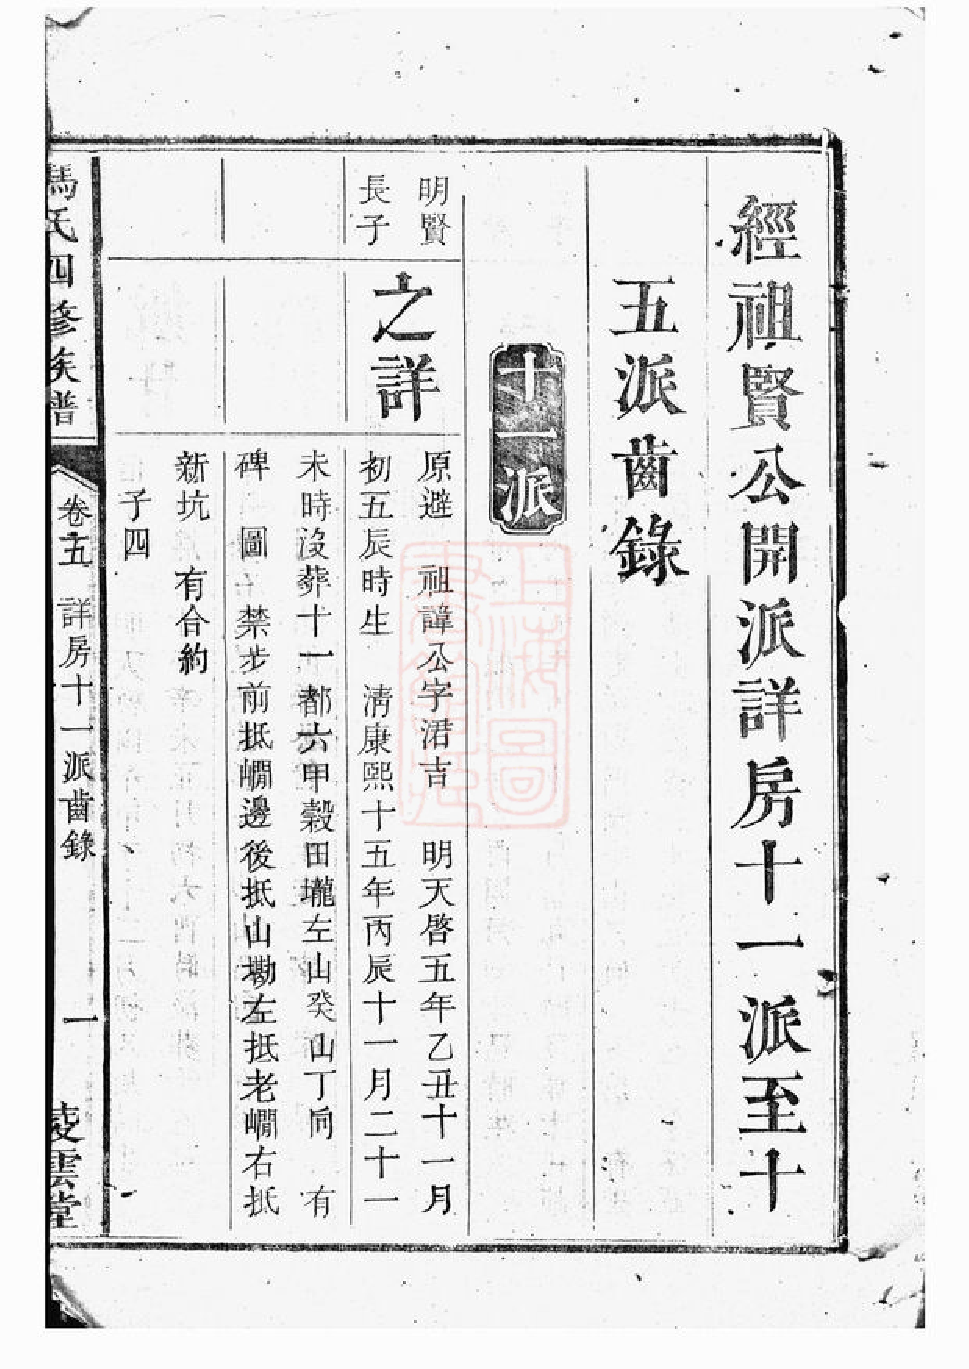 經祖賢公開派詳房十一派至十
五派齒錄
十一派
明賢
長子
之詳
原避 祖諱公字涒吉 明天啓五年乙丑十一月
初五辰時生 淸康熙十五年丙辰十一月二十一
未時沒葬十一都六甲穀田壠左山癸山丁向 有
碑 圖 禁步前抵嵧邊後抵山墈左抵老嵧右抵
新坑 有合約
子四
馮氏四修族譜
卷五 詳房十一派齒錄
一
凌雲堂
上海圖